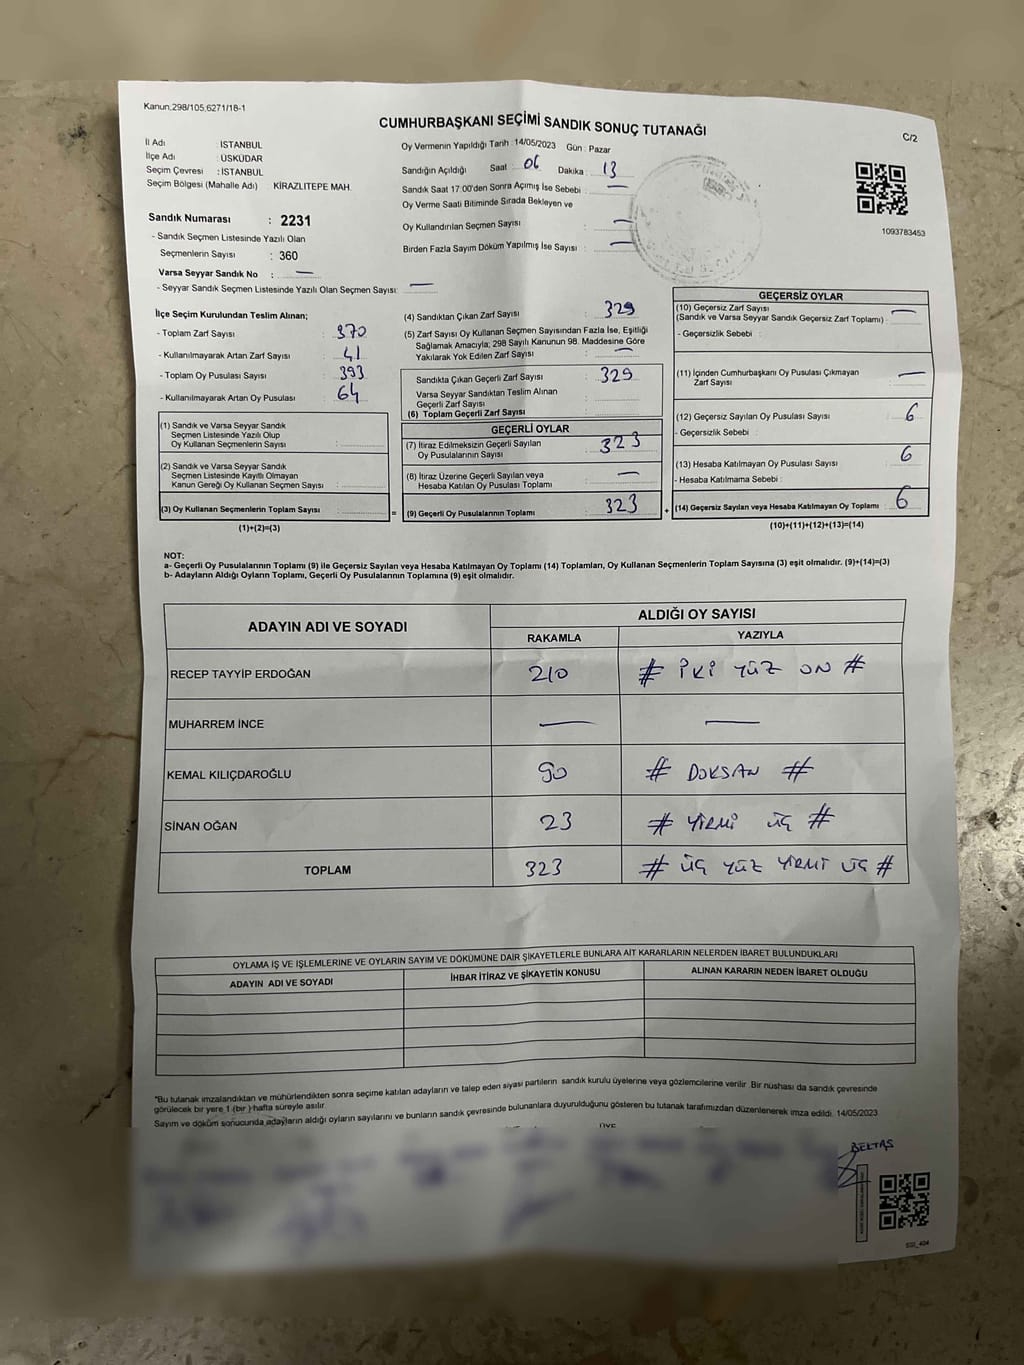 Kanun:298/105,6271/18-1
CUMHURBAŞKANI SEÇİMİ SANDIK SONUÇ TUTANAĞI
C/2
İl Adı : İSTANBUL
İlçe Adı : ÜSKÜDAR
Seçim Çevresi : İSTANBUL
Seçim Bölgesi (Mahalle Adı) KİRAZLITEPE MAH.
Sandık Numarası : 2231
- Sandık Seçmen Listesinde Yazılı Olan
Seçmenlerin Sayısı : 360
Varsa Seyyar Sandık No : —
- Seyyar Sandık Seçmen Listesinde Yazılı Olan Seçmen Sayısı: —
Oy Vermenin Yapıldığı Tarih :14/05/2023 Gün : Pazar
Sandığın Açıldığı Saat : 06 Dakika : 13
Sandık Saat 17:00'den Sonra Açımış İse Sebebi : —
Oy Verme Saati Bitiminde Sırada Bekleyen ve
Oy Kullandırılan Seçmen Sayısı : —
Birden Fazla Sayım Döküm Yapılmış İse Sayısı : —
1093783453
İlçe Seçim Kurulundan Teslim Alınan;
- Toplam Zarf Sayısı : 370
- Kullanılmayarak Artan Zarf Sayısı : 41
- Toplam Oy Pusulası Sayısı : 393
- Kullanılmayarak Artan Oy Pusulası : 64
(1) Sandık ve Varsa Seyyar Sandık
Seçmen Listesinde Yazılı Olup
Oy Kullanan Seçmenlerin Sayısı :
(2) Sandık ve Varsa Seyyar Sandık
Seçmen Listesinde Kayıtlı Olmayan
Kanun Gereği Oy Kullanan Seçmen Sayısı :
(3) Oy Kullanan Seçmenlerin Toplam Sayısı :
(1)+(2)=(3)
(4) Sandıktan Çıkan Zarf Sayısı : 329
(5) Zarf Sayısı Oy Kullanan Seçmen Sayısından Fazla İse, Eşitliği
Sağlamak Amacıyla; 298 Sayılı Kanunun 98. Maddesine Göre
Yakılarak Yok Edilen Zarf Sayısı : —
Sandıkta Çıkan Geçerli Zarf Sayısı : 329
Varsa Seyyar Sandıktan Teslim Alınan
Geçerli Zarf Sayısı :
(6) Toplam Geçerli Zarf Sayısı :
GEÇERLİ OYLAR
(7) İtiraz Edilmeksizin Geçerli Sayılan
Oy Pusulalarının Sayısı : 323
(8) İtiraz Üzerine Geçerli Sayılan veya
Hesaba Katılan Oy Pusulası Toplamı : —
= (9) Geçerli Oy Pusulalarının Toplamı : 323 +
GEÇERSİZ OYLAR
(10) Geçersiz Zarf Sayısı
(Sandık ve Varsa Seyyar Sandık Geçersiz Zarf Toplamı) : —
- Geçersizlik Sebebi :
(11) İçinden Cumhurbaşkanı Oy Pusulası Çıkmayan
Zarf Sayısı : —
(12) Geçersiz Sayılan Oy Pusulası Sayısı : 6
- Geçersizlik Sebebi :
(13) Hesaba Katılmayan Oy Pusulası Sayısı : 6
- Hesaba Katılmama Sebebi :
(14) Geçersiz Sayılan veya Hesaba Katılmayan Oy Toplamı : 6
(10)+(11)+(12)+(13)=(14)
NOT:
a- Geçerli Oy Pusulalarının Toplamı (9) ile Geçersiz Sayılan veya Hesaba Katılmayan Oy Toplamı (14) Toplamları, Oy Kullanan Seçmenlerin Toplam Sayısına (3) eşit olmalıdır. (9)+(14)=(3)
b- Adayların Aldığı Oyların Toplamı, Geçerli Oy Pusulalarının Toplamına (9) eşit olmalıdır.
ADAYIN ADI VE SOYADI
ALDIĞI OY SAYISI
RAKAMLA YAZIYLA
RECEP TAYYİP ERDOĞAN 210 # İKİ YÜZ ON #
MUHARREM İNCE — —
KEMAL KILIÇDAROĞLU 90 # DOKSAN #
SİNAN OĞAN 23 # YİRMİ ÜÇ #
TOPLAM 323 # ÜÇ YÜZ YİRMİ ÜÇ #
OYLAMA İŞ VE İŞLEMLERİNE VE OYLARIN SAYIM VE DÖKÜMÜNE DAİR ŞİKAYETLERLE BUNLARA AİT KARARLARIN NELERDEN İBARET BULUNDUKLARI
ADAYIN ADI VE SOYADI İHBAR İTİRAZ VE ŞİKAYETİN KONUSU ALINAN KARARIN NEDEN İBARET OLDUĞU
*Bu tutanak imzalandıktan ve mühürlendikten sonra seçime katılan adayların ve talep eden siyasi partilerin sandık kurulu üyelerine veya gözlemcilerine verilir. Bir nüshası da sandık çevresinde
görülecek bir yere 1 (bir) hafta süreyle asılır.
Sayım ve döküm sonucunda adayların aldığı oyların sayılarını ve bunların sandık çevresinde bulunanlara duyurulduğunu gösteren bu tutanak tarafımızdan düzenlenerek imza edildi. 14/05/2023
ÜYE
BEKTAŞ